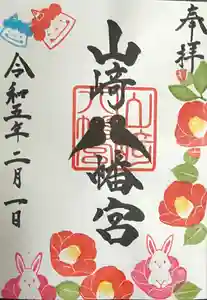 奉拝
山崎八幡宮
令和五年二月一日